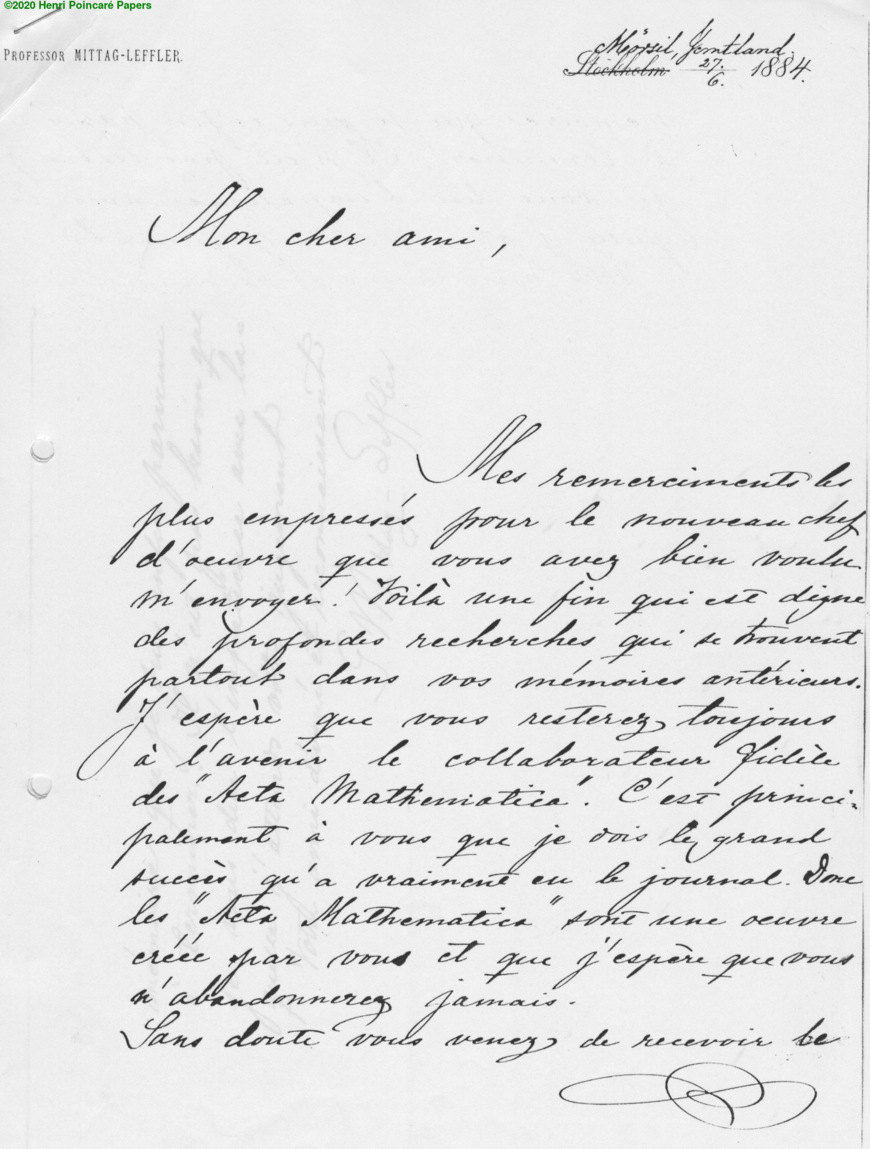 ©2020 Henri Poincaré Papers
PROFESSOR MITTAG-LEFFLER.
Mörsil, Jemtland.
Stockholm 27/6. 1884.
Mon cher ami,
Mes remerciments les
plus empressés pour le nouveau chef
d'oeuvre que vous avez bien voulu
m'envoyer! Voilà une fin qui est digne
des profondes recherches qui se trouvent
partout dans vos mémoires antérieurs.
J'espère que vous resterez toujours
à l'avenir le collaborateur fidèle
des "Acta Mathematica". C'est princi-
palement à vous que je dois le grand
succès qu'a vraiment eu le journal. Donc
les "Acta Mathematica" sont une oeuvre
créée par vous et que j'espère que vous
n'abandonnerez jamais.
Sans doute vous venez de recevoir le